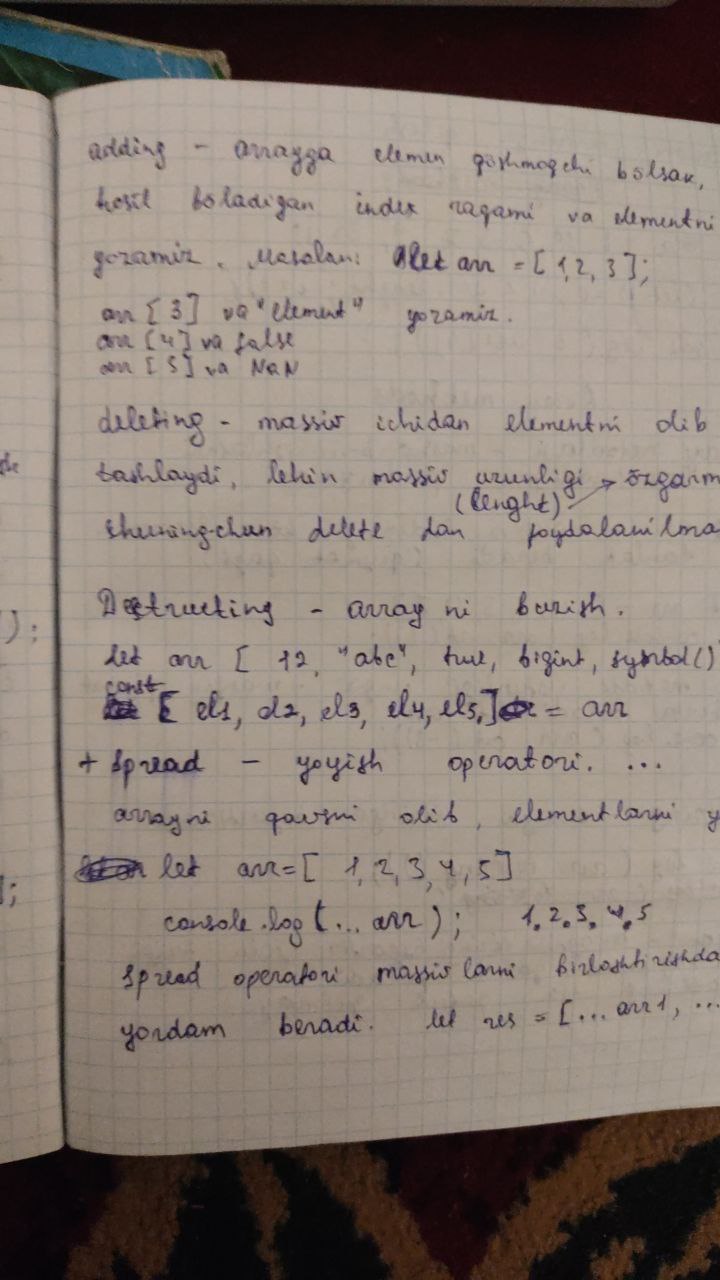 adding - arrayga elemen qoshmoqchi bolsak,
hosil boladigan index raqami va elementni
yozamiz. Masalan: let arr = [1,2,3];
arr [3] va "element" yozamiz.
arr [4] va false
arr [5] va NaN
deleting - massiv ichidan elementni olib
tashlaydi, lekin massiv uzunligi → özgarm
(lenght)
shuningchun delete dan foydalanilma
Destructing - array ni buzish.
let arr [ 12, "abc", true, bigint, symbol()
const
[ el1, el2, el3, el4, el5,] = arr
+ Spread - yoyish operatori. ...
arrayni qavsni olib, elementlarni y
let arr=[ 1,2,3,4,5]
console.log (... arr); 1.2.3.4.5
Spread operatori massivlarni birlashtirishda
yordam beradi. let res = [... arr1, ...
);
];